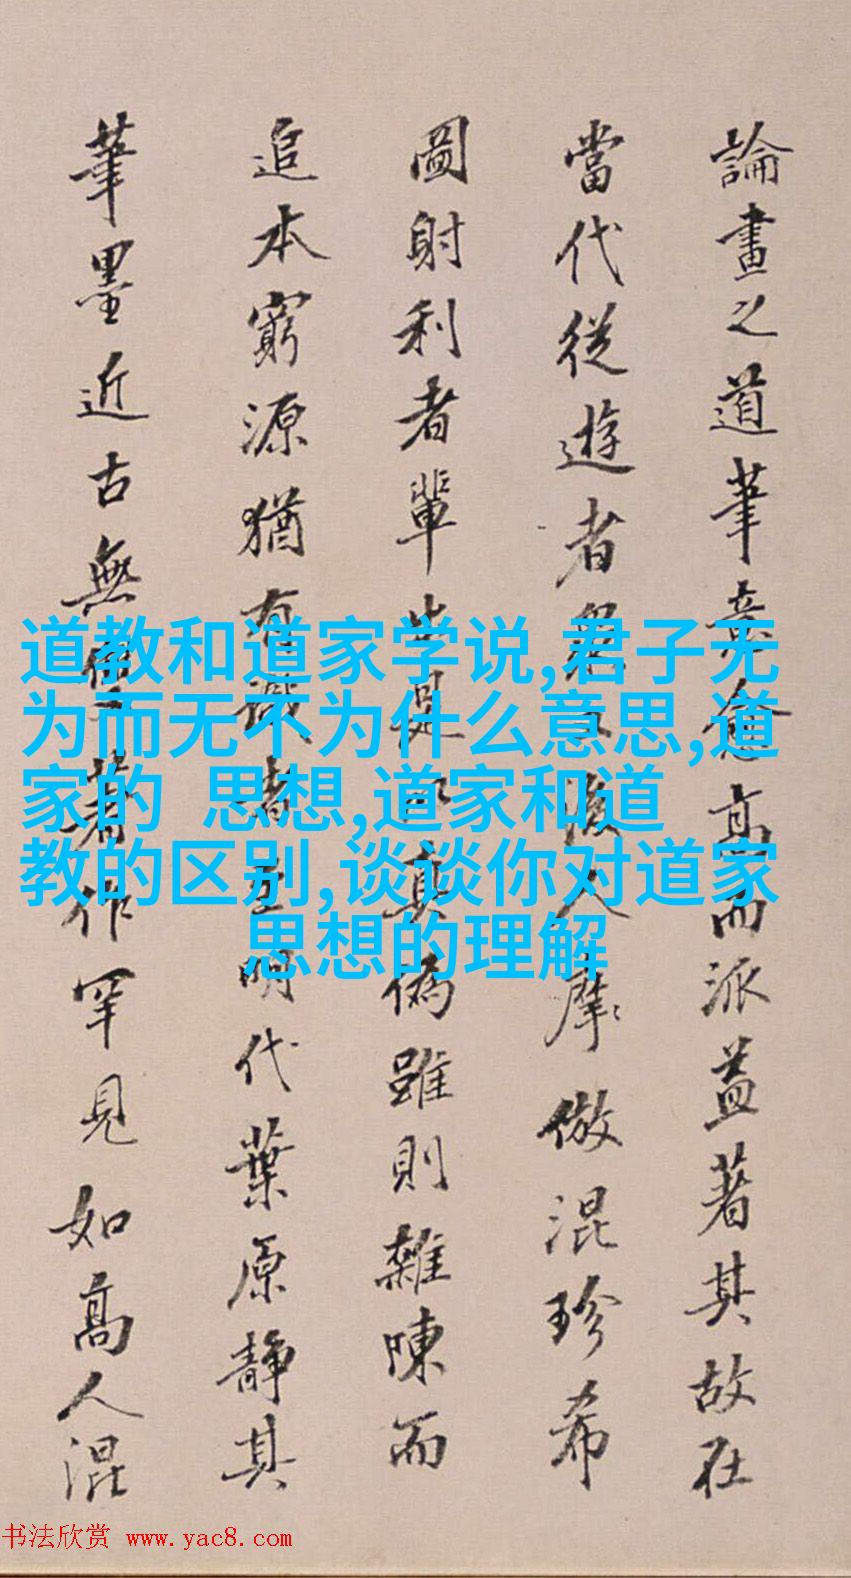 論畫之道筆意愈高而派益著其故在
當代從遊者後人摩倣混珍希
圖射利者輩出是真偽雖則雜陳而
追本窮源猶有識者至明代葉原靜其
筆墨近古無著作罕見如高人混
道教和道家学说,君子无
为而无不为什么意思,道
家的 思想,道家和道
教的区别,谈谈你对道家
思想的理解
书法欣赏 www.yac8.com